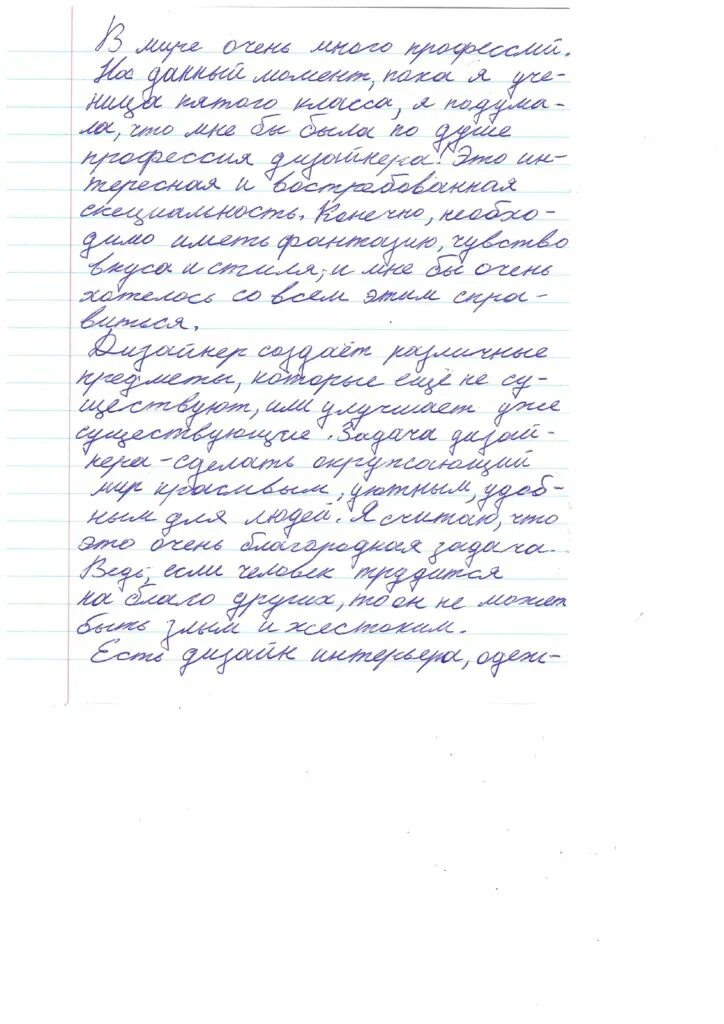 В мире очень много профессий.
На данный момент, пока я уче-
ница пятого класса, я подума-
ла, что мне бы была по душе
профессия дизайнера. Это ин-
тересная и востребованная
специальность. Конечно, необхо-
димо иметь фантазию, чувство
вкуса и стиля, и мне бы очень
хотелось со всем этим спра-
виться.
Дизайнер создаёт различные
предметы, которые ещё не су-
ществуют, или улучшает уже
существующие. Задача дизай-
нера - сделать окружающий
мир красивым, уютным, удоб-
ным для людей. Я считаю, что
это очень благородная задача.
Ведь, если человек трудится
на благо других, то он не может
быть злым и жестоким.
Есть дизайн интерьера, одеж-